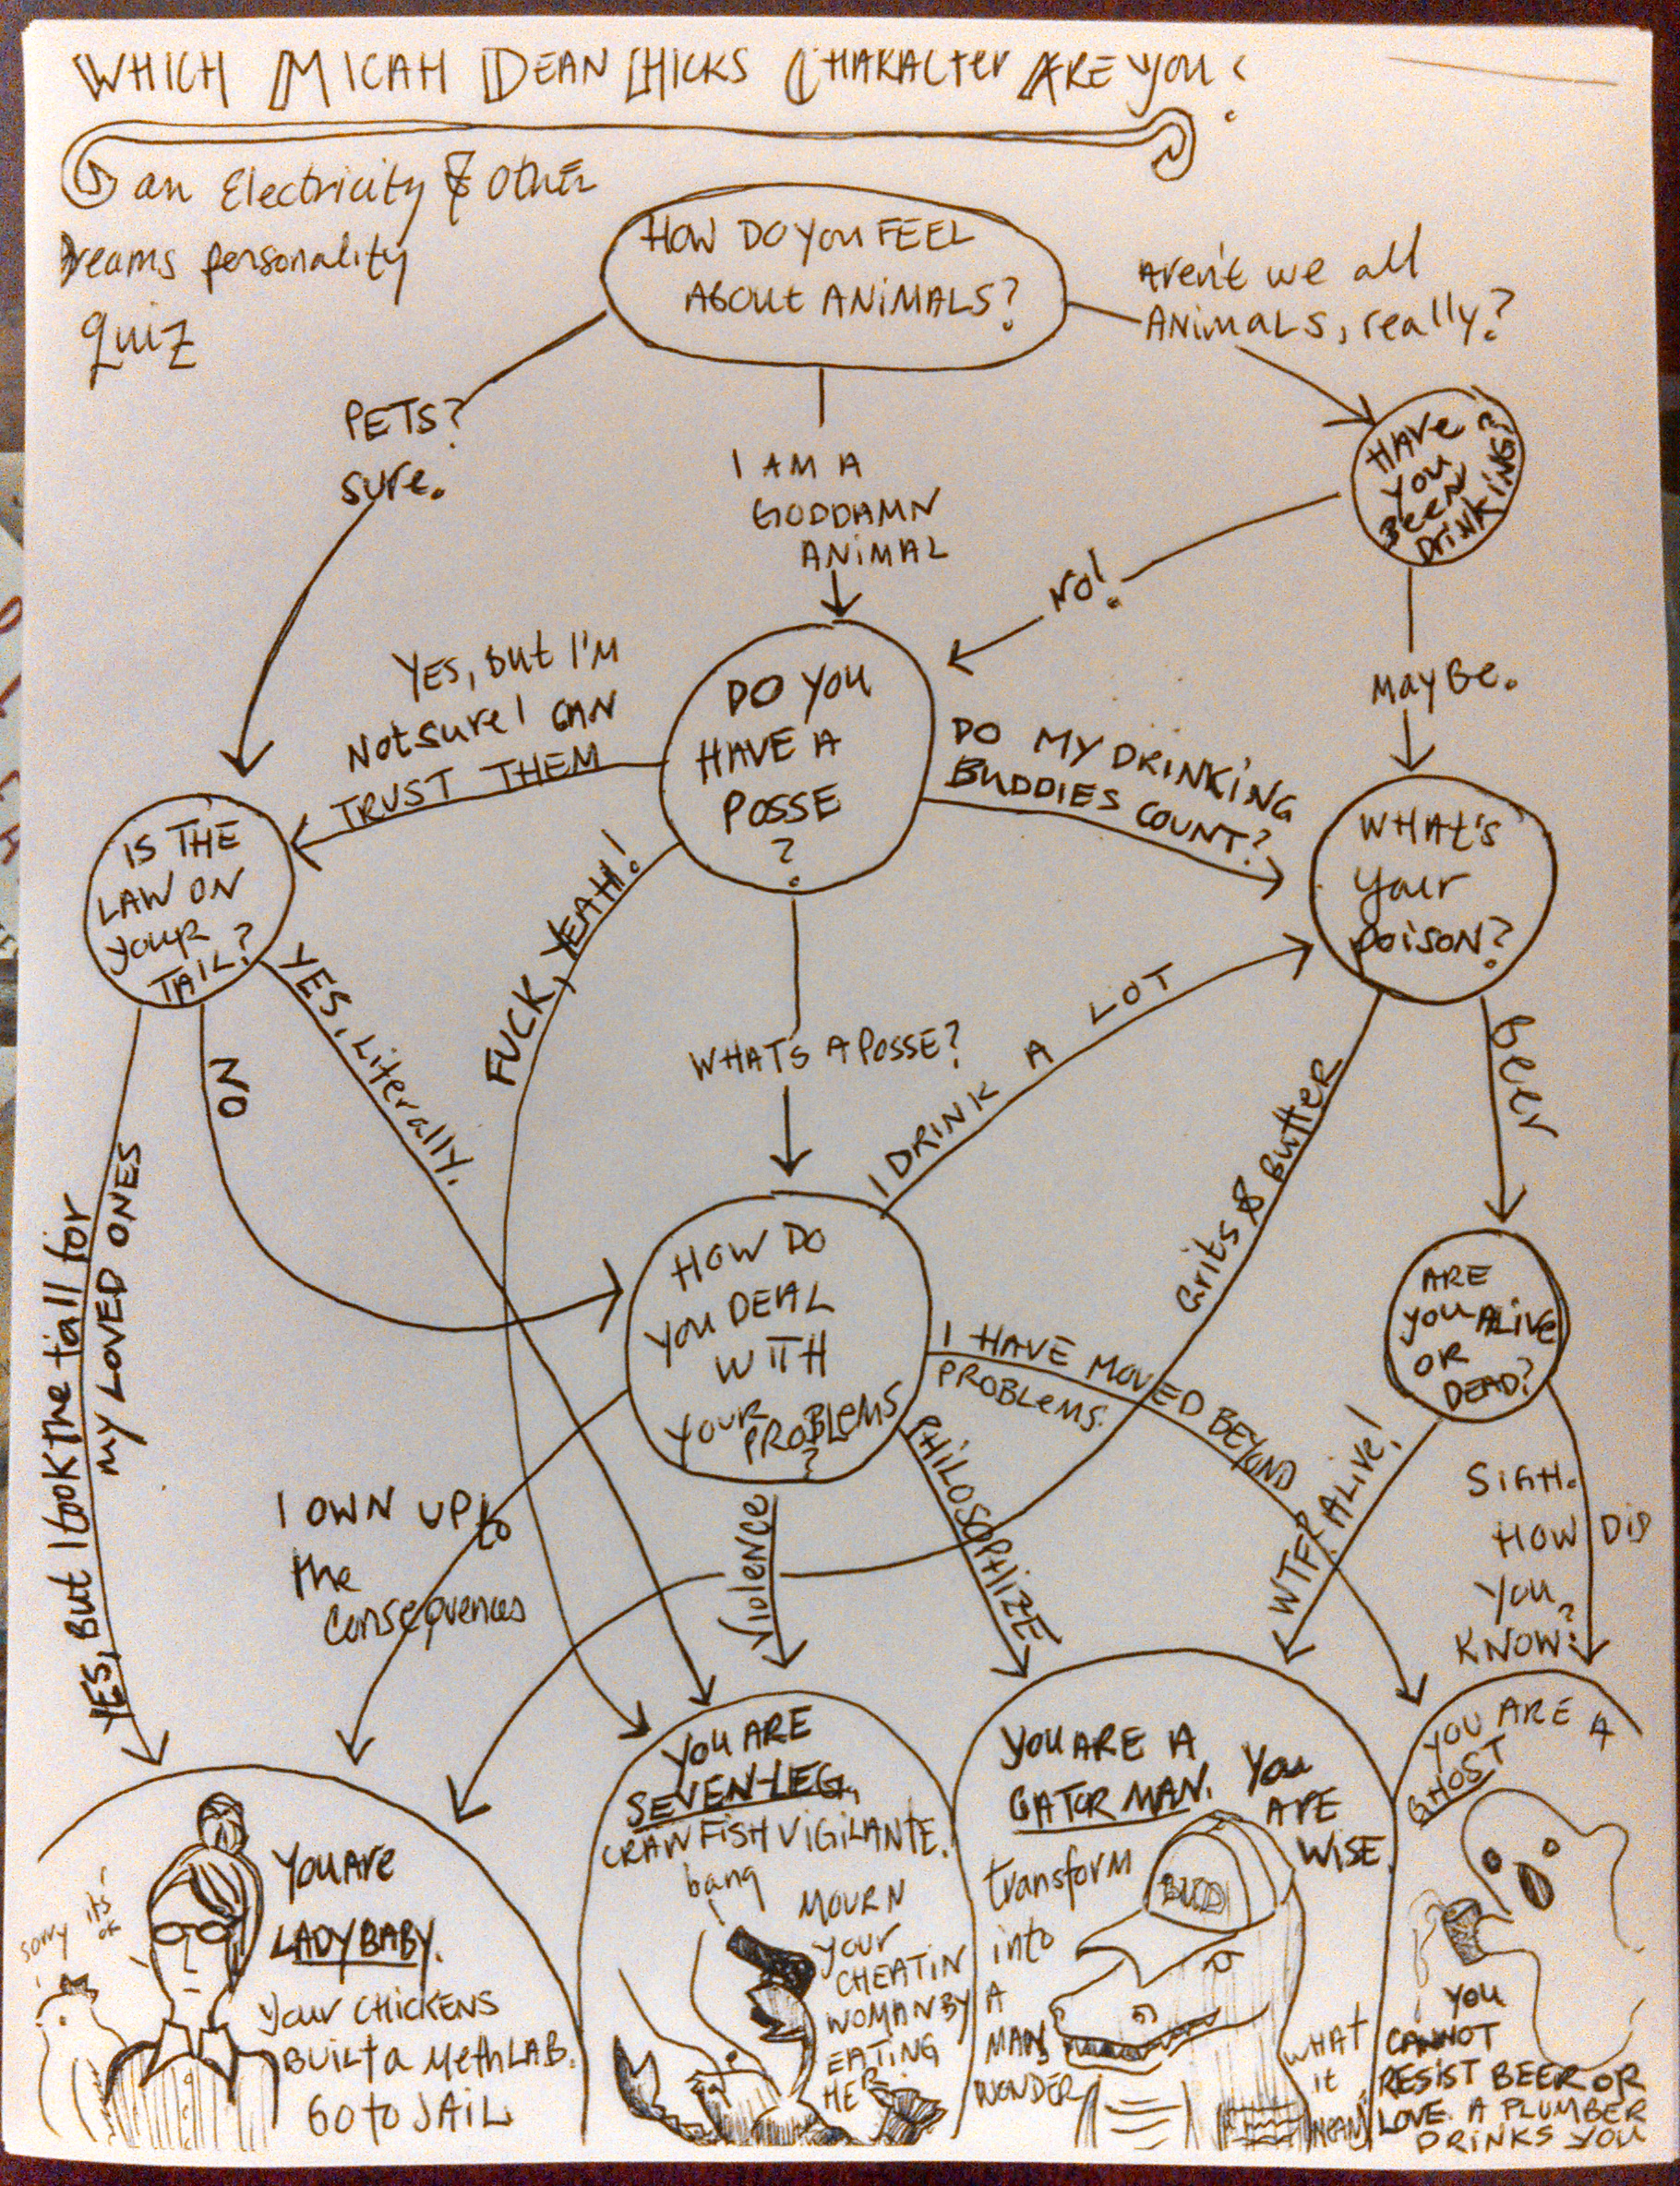 WHICH MICAH DEAN HICKS CHARACTER ARE YOU?
an Electricity & Other
Dreams personality
Quiz
HOW DO YOU FEEL
ABOUT ANIMALS?
Aren't we all
ANIMALS, really?
PETS?
sure.
I AM A
GODDAMN
ANIMAL
HAVE
YOU
BEEN
DRINKING?
NO!
MAYBE.
YES, But I'M
Not sure I CAN
TRUST THEM
DO YOU
HAVE A
POSSE
?
DO MY DRINKING
BUDDIES COUNT?
WHAT'S
Your
POISON?
IS THE
LAW ON
YOUR
TAIL?
FUCK, YEAH!
YES, Literally.
NO
WHAT'S A POSSE?
I DRINK A LOT
Grits & Butter
Beer
YES, But I took the fall for
MY LOVED ONES
HOW DO
YOU DEAL
WITH
YOUR
PROBLEMS
?
I HAVE MOVED BEYOND
PROBLEMS.
ARE
YOU ALIVE
OR
DEAD?
I OWN UP to
the
Consequences
Violence
PHILOSOPHIZE
WTF? ALIVE!
SIGH.
HOW DID
YOU
KNOW?
YOU ARE
LADYBABY.
Your CHICKENS
BUILT a METH LAB.
GO to JAIL
sorry
it's
ok
YOU ARE
SEVEN-LEG,
CRAWFISH VIGILANTE.
bang
MOURN
your
CHEATIN
WOMAN BY
EATING
HER
YOU ARE A
GATOR MAN. You
ARE
WISE.
transform
into
A
MAN
WONDER
BUD
WHAT
it
MEANS
YOU ARE A
GHOST
YOU
CANNOT
RESIST BEER OR
LOVE. A PLUMBER
DRINKS YOU